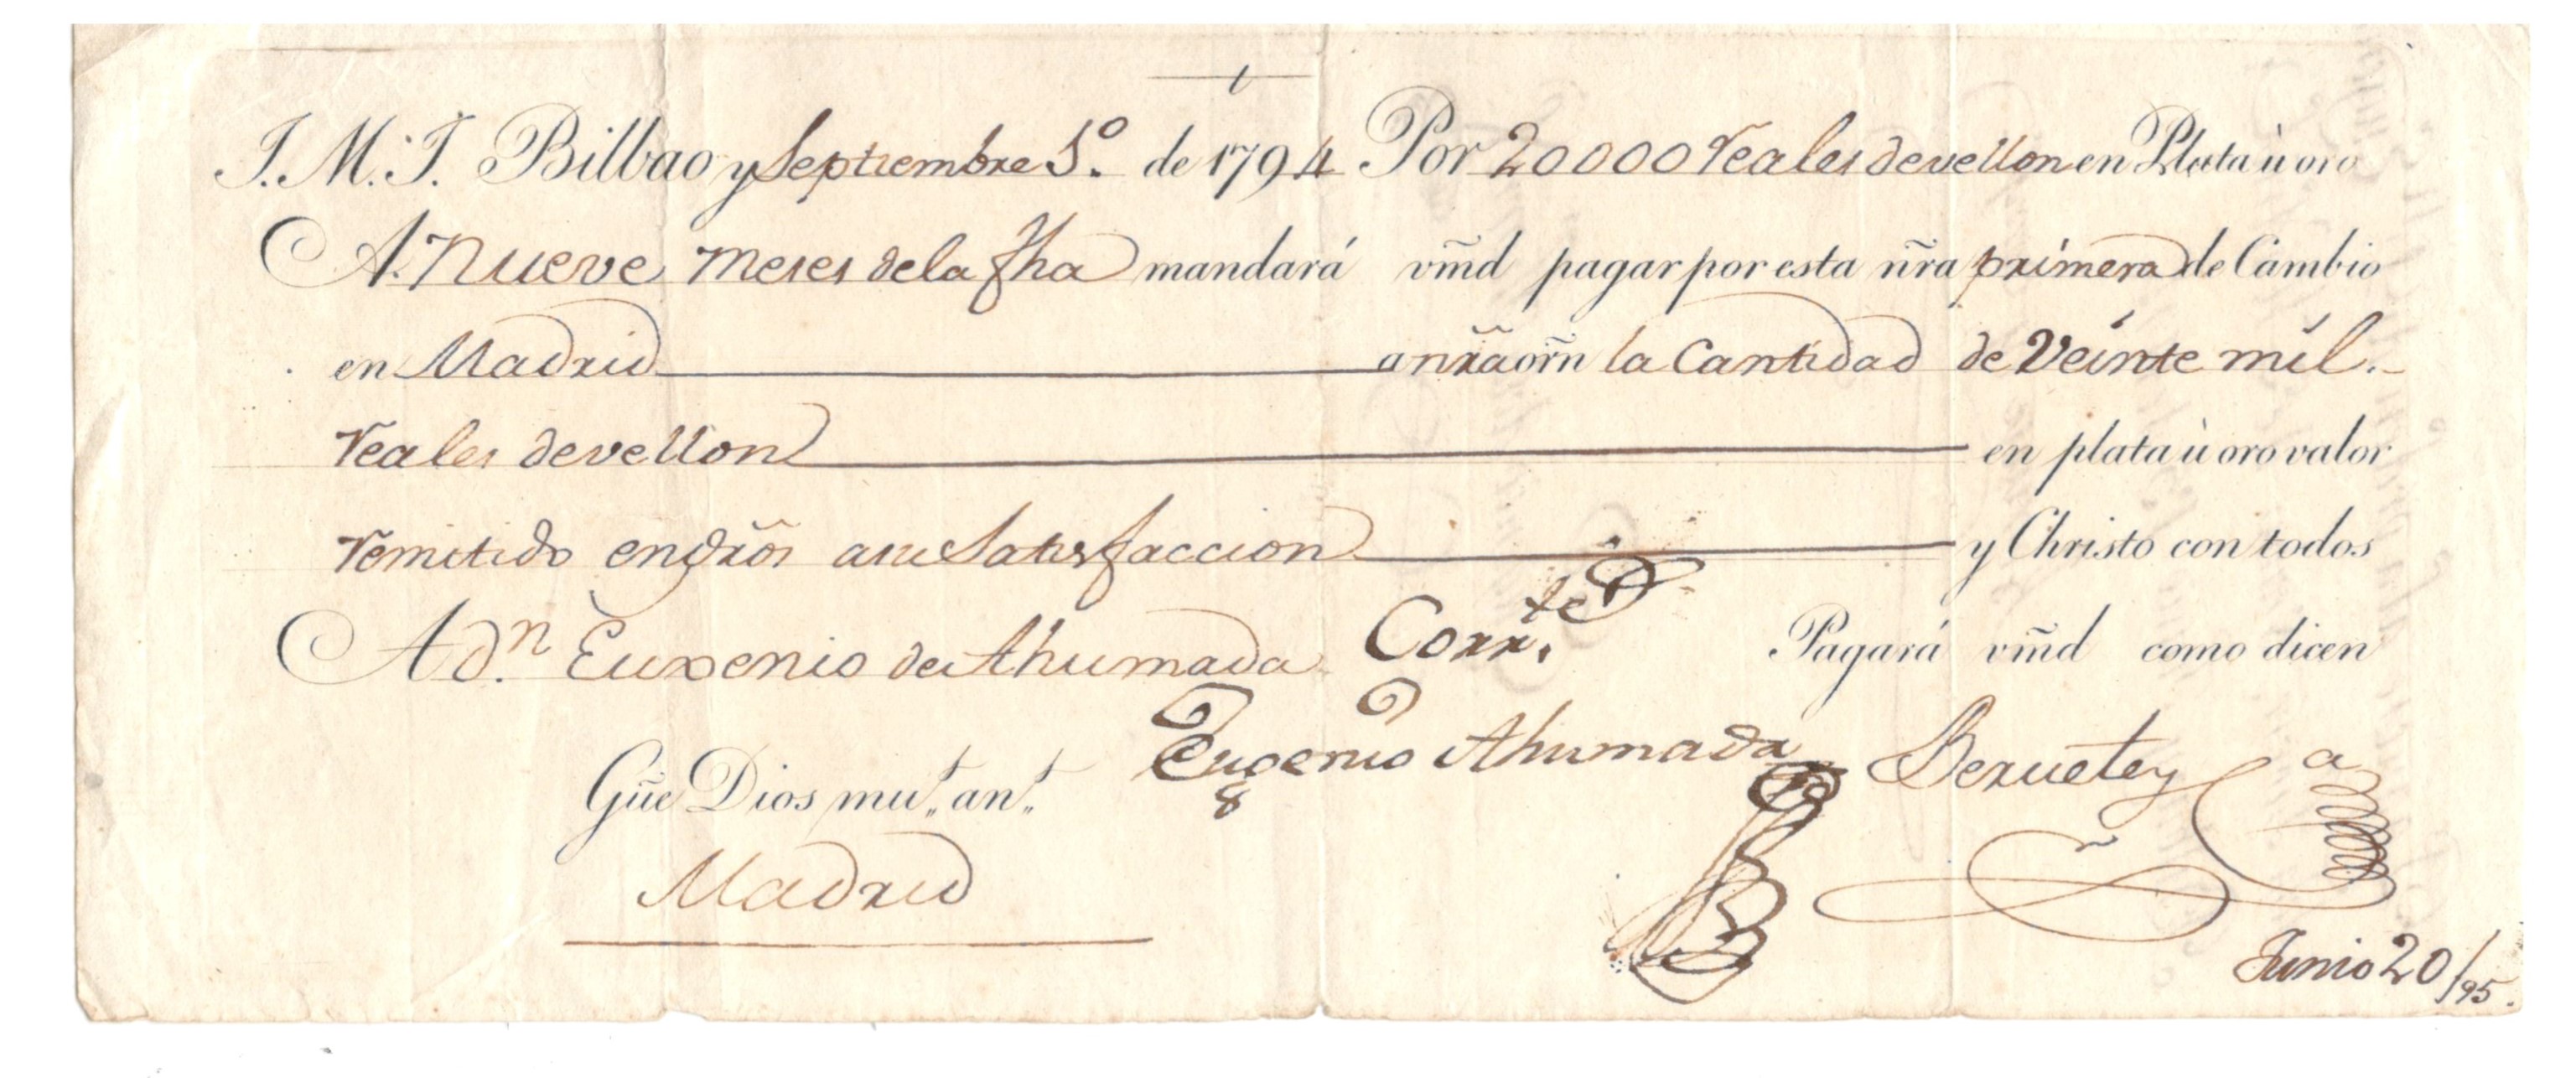 J. M. J. Bilbao y Septiembre 5.º de 1794 Por 20000 reales de vellon en Plata ù oro
A. Nueve meses de la fha mandará vm̃d pagar por esta ñra primera de Cambio
en Madrid a nr̃a orñ la Cantidad de Veinte mil.
reales de vellon en plata ù oro valor
remitido en gr̃os a su Satisfaccion y Christo con todos
A d.n Euxenio de Ahumada Pagará vm̃d como dicen
Corr.te
Eugenio Ahumada
Gũe Dios mu.t an.s
Madrid
Junio 20/95.